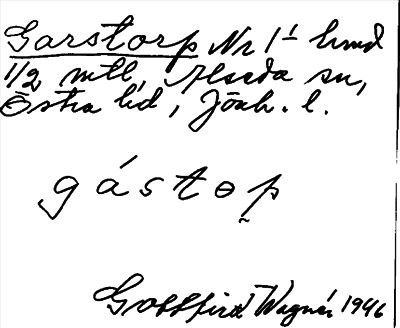 Garstorp Nr 1 hmd
1/2 mtl, Alseda sn,
Östra hd, Jönk. l.
gástop̰
Gottfrid Wagnér 1946